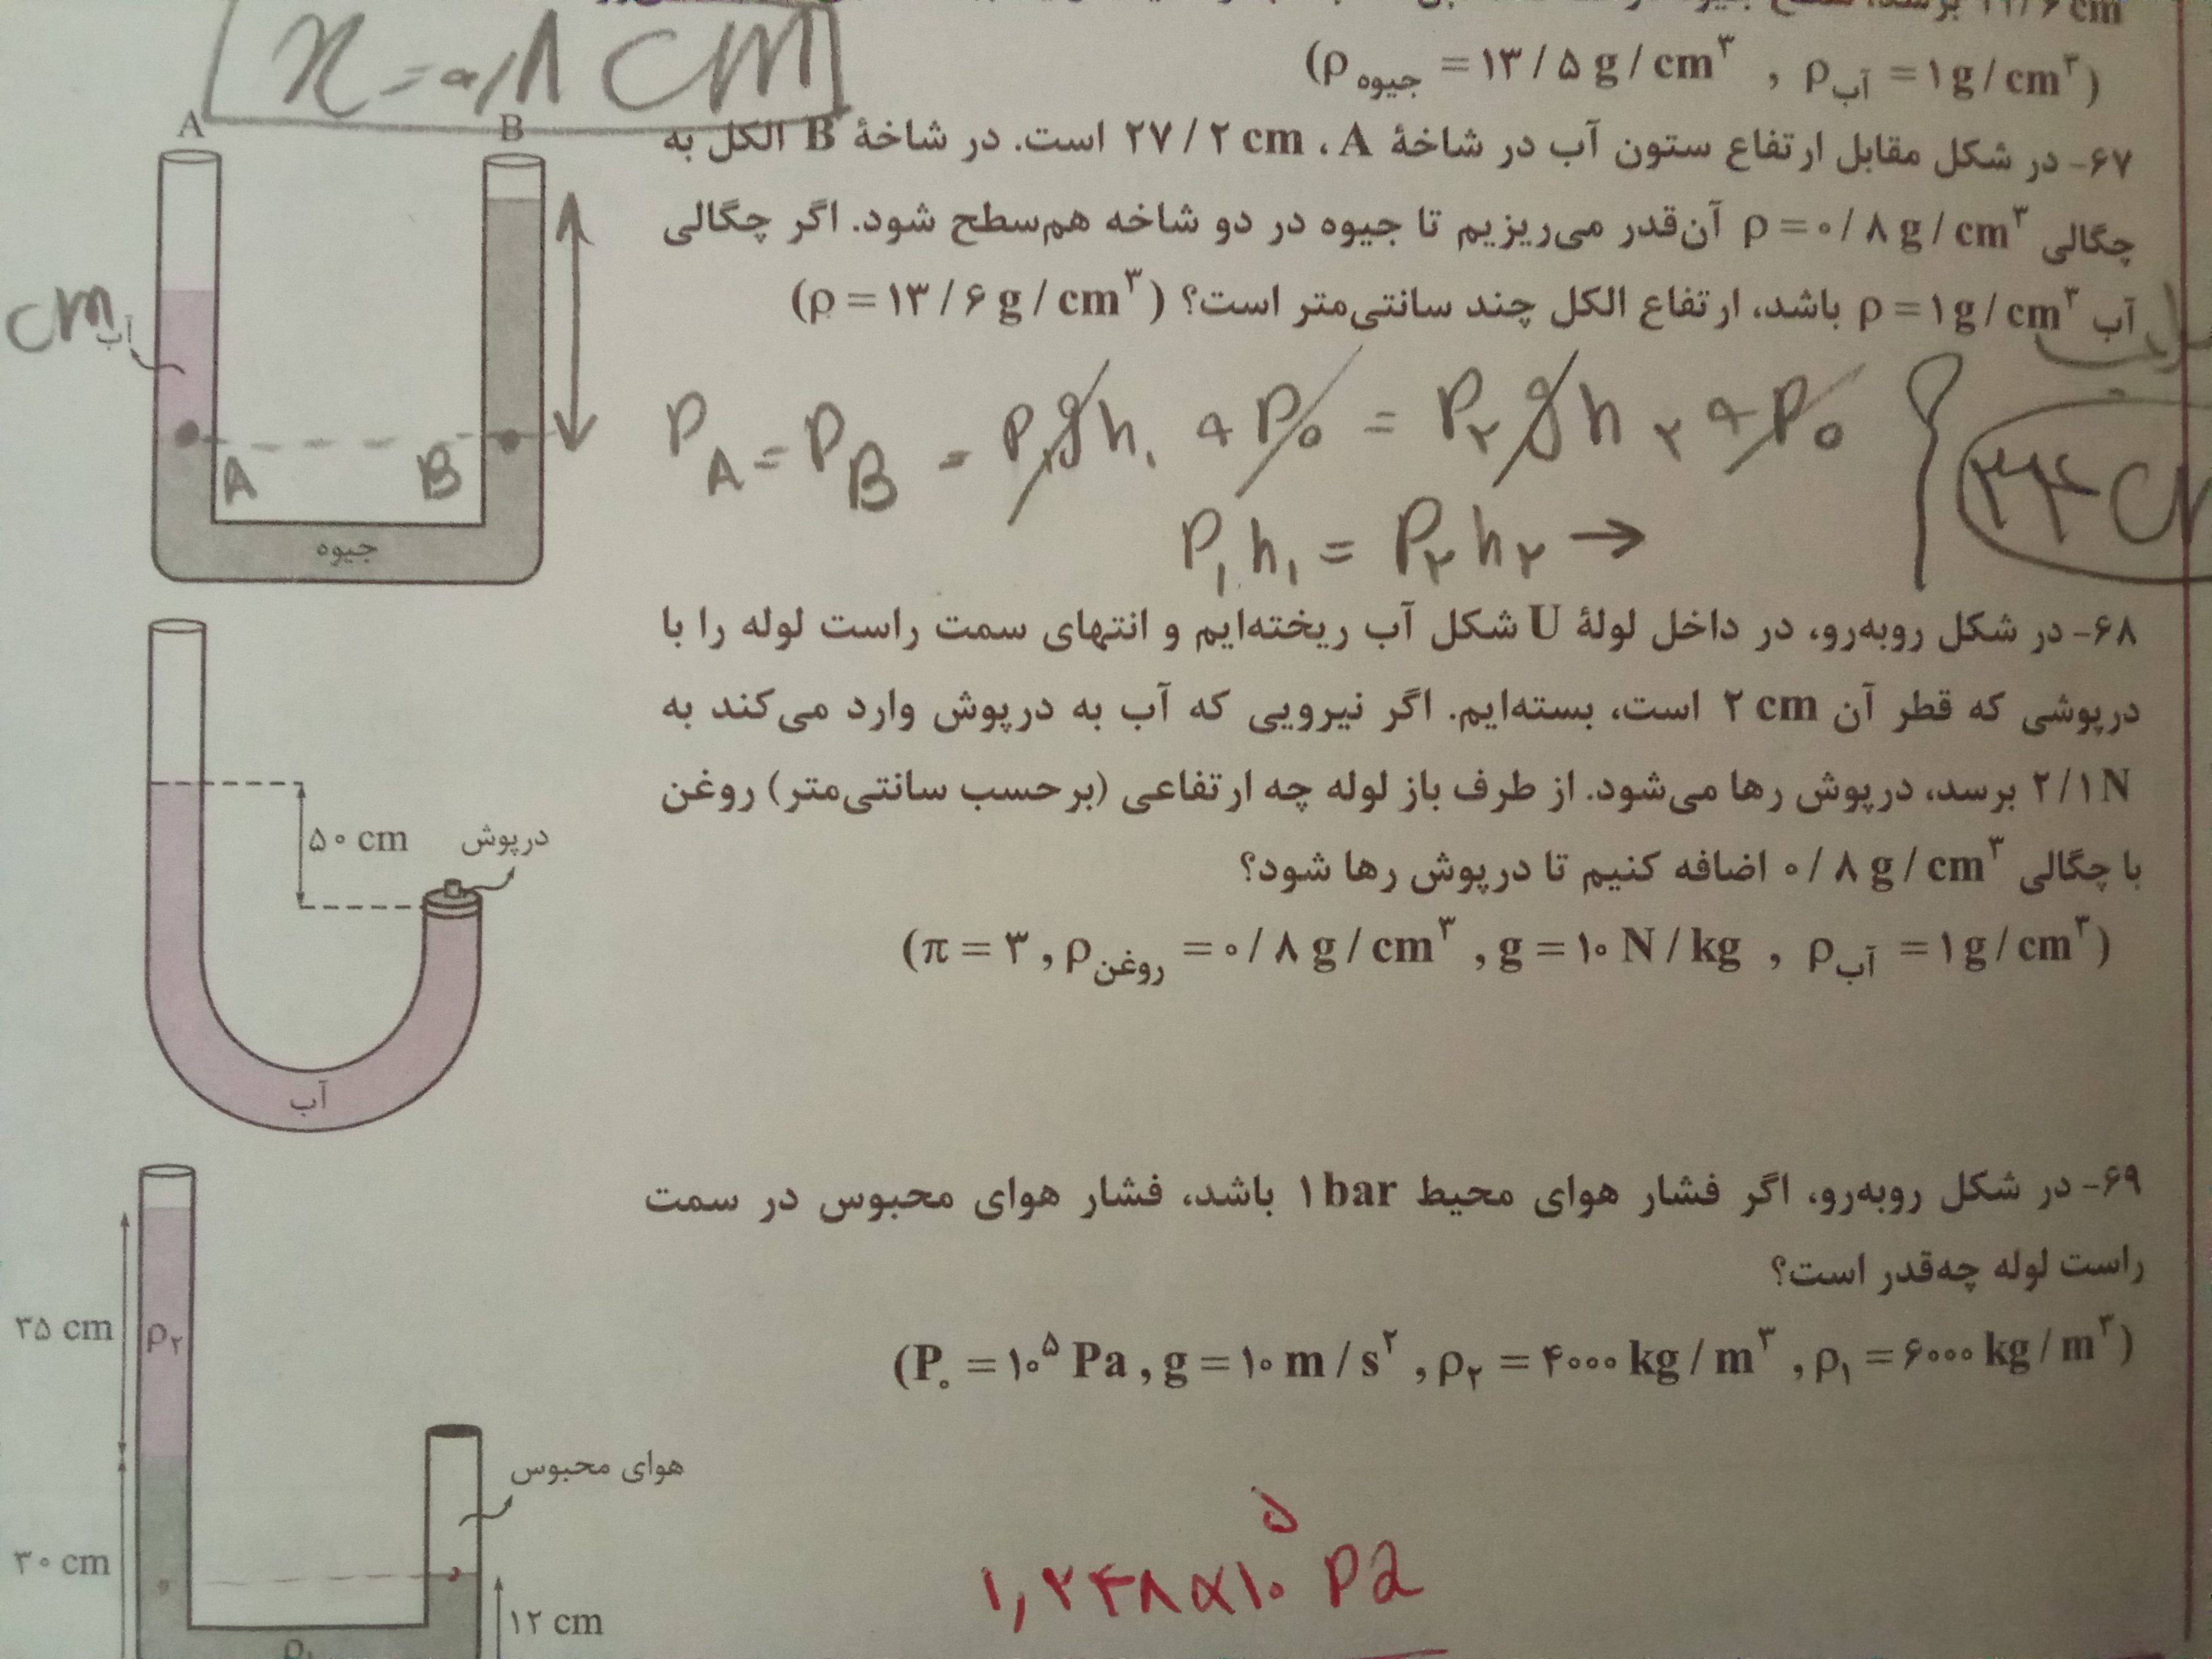 x = ۰/۸ cm
(ρجیوه = ۱۳/۵ g/cm³ , ρآب = ۱ g/cm³)
۶۷- در شکل مقابل ارتفاع ستون آب در شاخهٔ A، ۲۷/۲ cm است. در شاخهٔ B الکل به
چگالی ρ = ۰/۸ g/cm³ آن‌قدر می‌ریزیم تا جیوه در دو شاخه هم‌سطح شود. اگر چگالی
آب ρ = ۱ g/cm³ باشد، ارتفاع الکل چند سانتی‌متر است؟ (ρ = ۱۳/۶ g/cm³)
A
B
cm
آب
A
B
جیوه
P_A = P_B = ρ₁gh₁ + P₀ = ρ₂gh₂ + P₀
ρ₁h₁ = ρ₂h₂ →
۳۴ c
۶۸- در شکل روبه‌رو، در داخل لولهٔ U شکل آب ریخته‌ایم و انتهای سمت راست لوله را با
درپوشی که قطر آن ۲ cm است، بسته‌ایم. اگر نیرویی که آب به درپوش وارد می‌کند به
۲/۱ N برسد، درپوش رها می‌شود. از طرف باز لوله چه ارتفاعی (برحسب سانتی‌متر) روغن
با چگالی ۰/۸ g/cm³ اضافه کنیم تا درپوش رها شود؟
(π = ۳ , ρروغن = ۰/۸ g/cm³ , g = ۱۰ N/kg , ρآب = ۱ g/cm³)
۵۰ cm
درپوش
آب
۶۹- در شکل روبه‌رو، اگر فشار هوای محیط ۱ bar باشد، فشار هوای محبوس در سمت
راست لوله چه‌قدر است؟
(P₀ = ۱۰⁵ Pa , g = ۱۰ m/s² , ρ₂ = ۴۰۰۰ kg/m³ , ρ₁ = ۶۰۰۰ kg/m³)
۳۵ cm
ρ₂
هوای محبوس
۳۰ cm
۱۲ cm
ρ₁
۱,۲۴۸×۱۰⁵ Pa